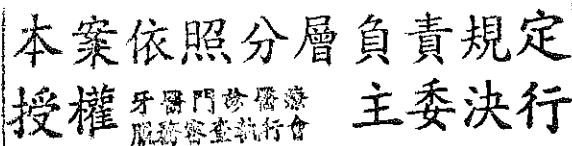 本案依照分層負責規定
授權牙醫門診醫療服務審查執行會主委決行